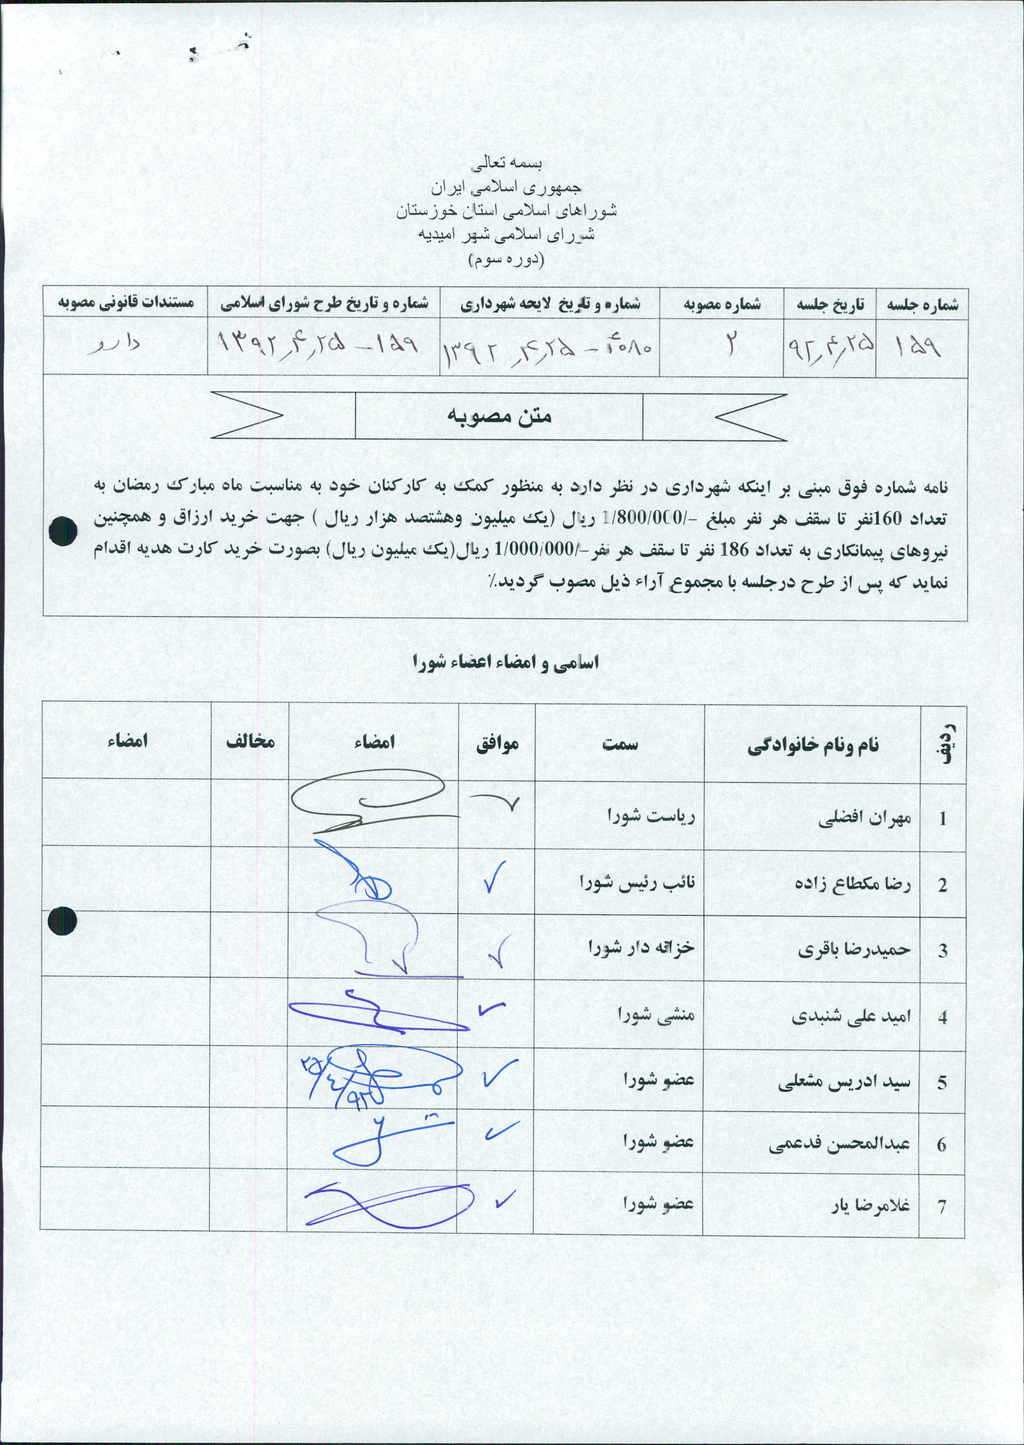 بسمه تعالی
جمهوری اسلامی ایران
شوراهای اسلامی استان خوزستان
شورای اسلامی شهر امیدیه
(دوره سوم)
شماره جلسه تاریخ جلسه شماره مصوبه شماره و تاریخ لایحه شهرداری شماره و تاریخ طرح شورای اسلامی مستندات قانونی مصوبه
۱۵۹ ۹۲٫۴٫۲۵ ۲ ۱۳۹۲٫۴٫۲۵ - ۴۰۸۰ ۱۵۹ - ۱۳۹۲٫۴٫۲۵ دارد
متن مصوبه
نامه شماره فوق مبنی بر اینکه شهرداری در نظر دارد به منظور کمک به کارکنان خود به مناسبت ماه مبارک رمضان به
تعداد 160نفر تا سقف هر نفر مبلغ -/1/800/000 ریال (یک میلیون وهشتصد هزار ریال ) جهت خرید ارزاق و همچنین
نیروهای پیمانکاری به تعداد 186 نفر تا سقف هر نفر-/1/000/000 ریال(یک میلیون ریال) بصورت خرید کارت هدیه اقدام
نماید که پس از طرح درجلسه با مجموع آراء ذیل مصوب گردید.٪
اسامی و امضاء اعضاء شورا
ردیف نام ونام خانوادگی سمت موافق امضاء مخالف امضاء
1 مهران افضلی ریاست شورا
2 رضا مکطاع زاده نائب رئیس شورا
3 حمیدرضا باقری خزانه دار شورا
4 امید علی شنبدی منشی شورا
5 سید ادریس مشعلی عضو شورا ۲۵/۴/۹۲
6 عبدالمحسن فدعمی عضو شورا
7 غلامرضا یار عضو شورا